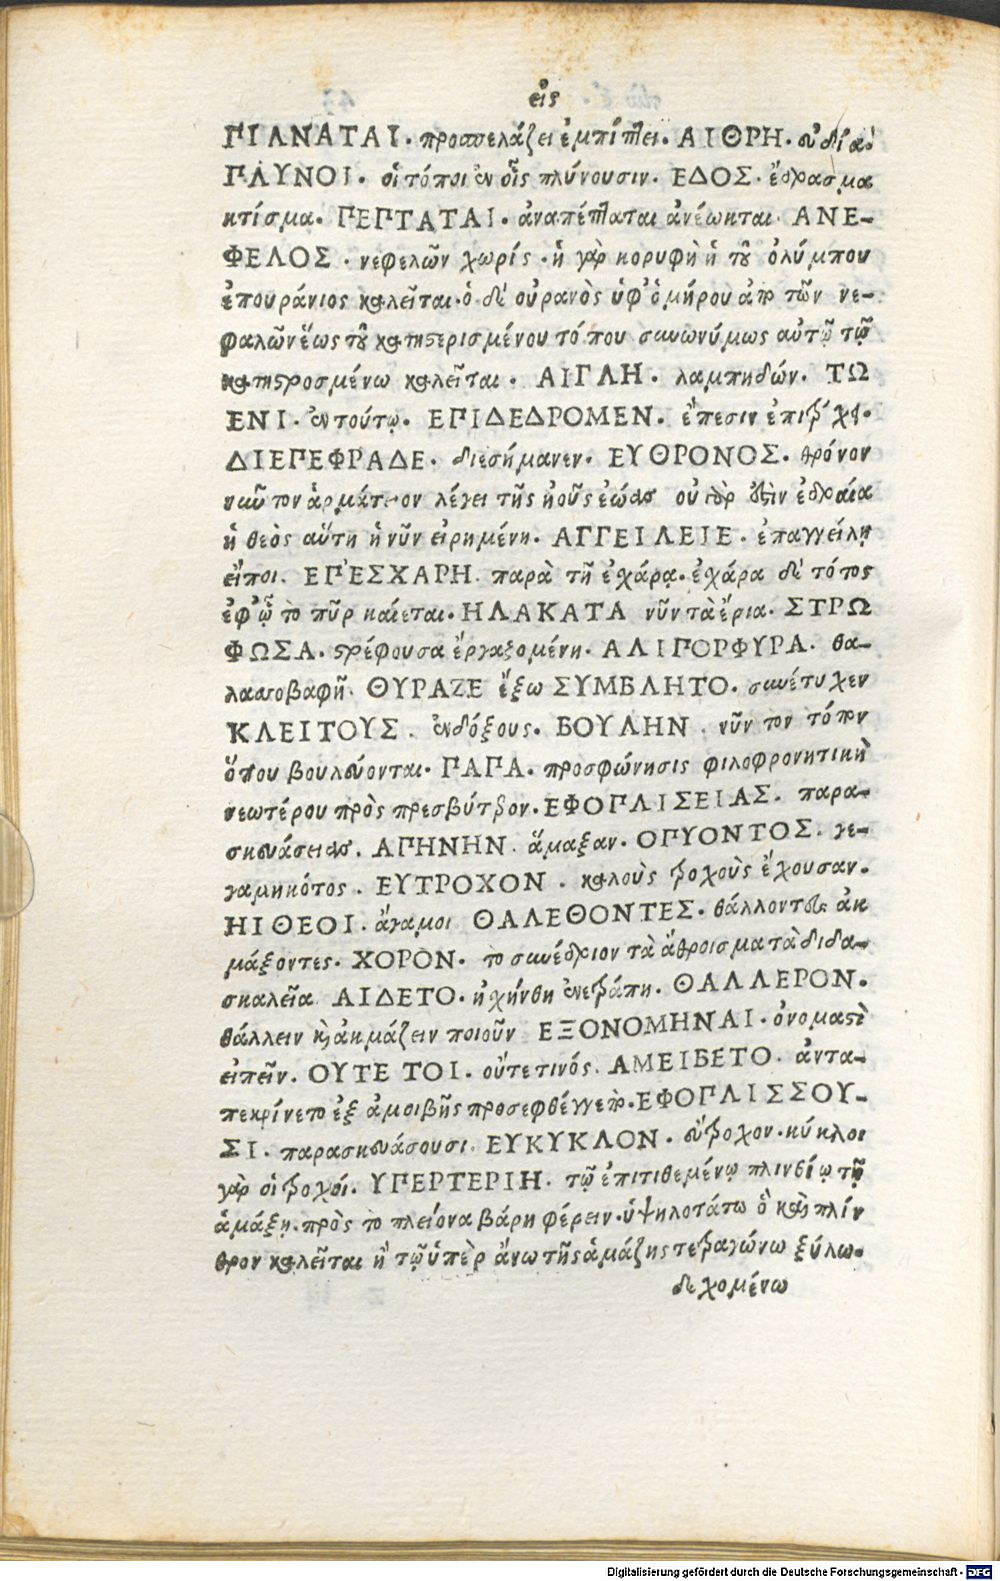 εἰς
ΠΙΛΝΑΤΑΙ. προσπελάζει ἐμπίπτει. ΑΙΘΡΗ. εὐδία.
ΠΛΥΝΟΙ. οἱ τόποι ἐν οἷς πλύνουσιν. ΕΔΟΣ. ἕδρασμα
κτίσμα. ΠΕΠΤΑΤΑΙ. ἀναπέπταται ἀνέωκται. ΑΝΕ-
ΦΕΛΟΣ. νεφελῶν χωρίς. ἡ γὰρ κορυφὴ ἡ τοῦ ὀλύμπου
ἐπουράνιος καλεῖται. ὁ δὲ οὐρανὸς ὑφ' ὁμήρου ἀπὸ τῶν νε-
φαλῶν ἕως τοῦ κατηστερισμένου τόπου συνωνύμως αὐτῷ τῷ
κατηστροσμένω καλεῖται. ΑΙΓΛΗ. λαμπηδών. ΤΩ
ΕΝΙ. ἐν τούτῳ. ΕΠΙΔΕΔΡΟΜΕΝ. ἔπεσιν ἐπιτρέχει.
ΔΙΕΠΕΦΡΑΔΕ. διεσήμανεν. ΕΥΘΡΟΝΟΣ. θρόνον
νῦν τὸν ἁρμάτειον λέγει τῆς ἠοῦς ἐώσας οὐ γὰρ ἐστιν ἑδραία
ἡ θεὸς αὕτη ἡ νῦν εἰρημένη. ΑΓΓΕΙΛΕΙΕ. ἐπαγγείλῃ
εἴποι. ΕΠ'ΕΣΧΑΡΗ. παρὰ τῆ ἐχάρᾳ. ἐχάρα δὲ τόπος
ἐφ' ᾧ τὸ πῦρ καίεται. ΗΛΑΚΑΤΑ νῦν τὰ ἔρια. ΣΤΡΩ
ΦΩΣΑ. στρέφουσα ἐργαξομένη. ΑΛΙΠΟΡΦΥΡΑ. θα-
λασσοβαφῆ. ΘΥΡΑΖΕ ἔξω ΣΥΜΒΛΗΤΟ. συνέτυχεν
ΚΛΕΙΤΟΥΣ. ἐνδόξους. ΒΟΥΛΗΝ. νῦν τὸν τόπον
ὅπου βουλεύονται. ΠΑΠΑ. προσφώνησις φιλοφρονητικὴ
νεωτέρου πρὸς πρεσβύτερον. ΕΦΟΠΛΙΣΕΙΑΣ. παρα-
σκευάσειας. ΑΠΗΝΗΝ. ἅμαξαν. ΟΠΥΟΝΤΟΣ. γε-
γαμηκότος. ΕΥΤΡΟΧΟΝ. καλοὺς τροχοὺς ἔχουσαν.
ΗΙΘΕΟΙ. ἄγαμοι ΘΑΛΕΘΟΝΤΕΣ. θάλλοντες ἀκ
μάξοντες. ΧΟΡΟΝ. τὸ συνέδριον τὰ ἀθροισματὰ διδα-
σκαλεῖα. ΑΙΔΕΤΟ. ἠχήνθη ἐνετράπη. ΘΑΛΛΕΡΟΝ.
θάλλειν καὶ ἀκμάζειν ποιοῦν ΕΞΟΝΟΜΗΝΑΙ. ὀνομαστὶ
εἰπεῖν. ΟΥΤΕ ΤΟΙ. οὔτε τινός. ΑΜΕΙΒΕΤΟ. ἀντα-
πεκρίνετο ἐξ ἀμοιβῆς προσεφθέγγετο. ΕΦΟΠΛΙΣΣΟΥ-
ΣΙ. παρασκευάσουσι. ΕΥΚΥΚΛΟΝ. εὔτροχον. κύκλοι
γὰρ οἱ τροχοί. ΥΠΕΡΤΕΡΙΗ. τῷ ἐπιτιθεμένῳ πλινθίῳ τῇ
ἁμάξῃ. πρὸς τὸ πλείονα βάρη φέρειν. ὑψηλοτάτω ὃ καὶ πλίν
θρον καλεῖται ἢ τῷ ὑπὲρ ἄνω τῆς ἁμάξης τετραγώνω ξύλω.
δεχομένω
Digitalisierung gefördert durch die Deutsche Forschungsgemeinschaft - DFG